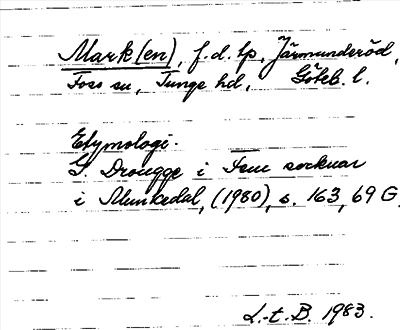 Mark(en), f.d. lp, Järmunderöd,
Foss sn, Tunge hd, Göteb. l.
Etymologi.
G. Drougge i Fem socknar
i Munkedal, (1980), s. 163, 69 G.
L.-t. B. 1983.